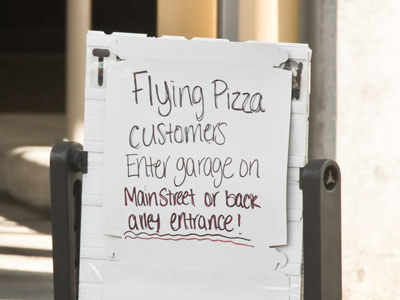 Flying Pizza
customers
Enter garage on
Main Street or back
alley entrance!